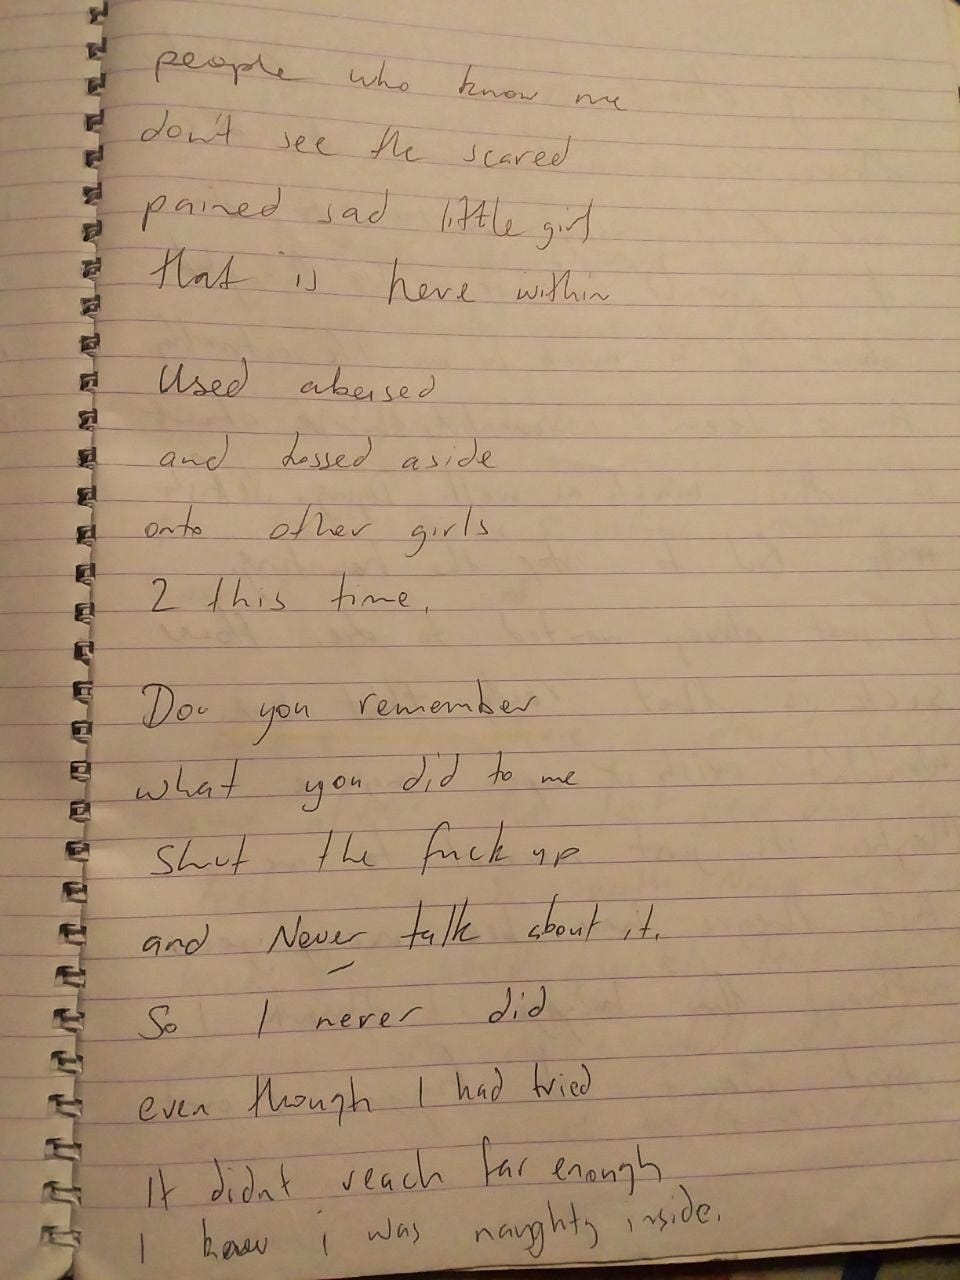 people who know me
don't see the scared
pained sad little girl
that is here within
Used abused
and tossed aside
onto other girls
2 this time.
Dou you remember
what you did to me
Shut the fuck up
and Never talk about it.
So I never did
even though I had tried
It didnt reach far enough
I know i was naughty inside.